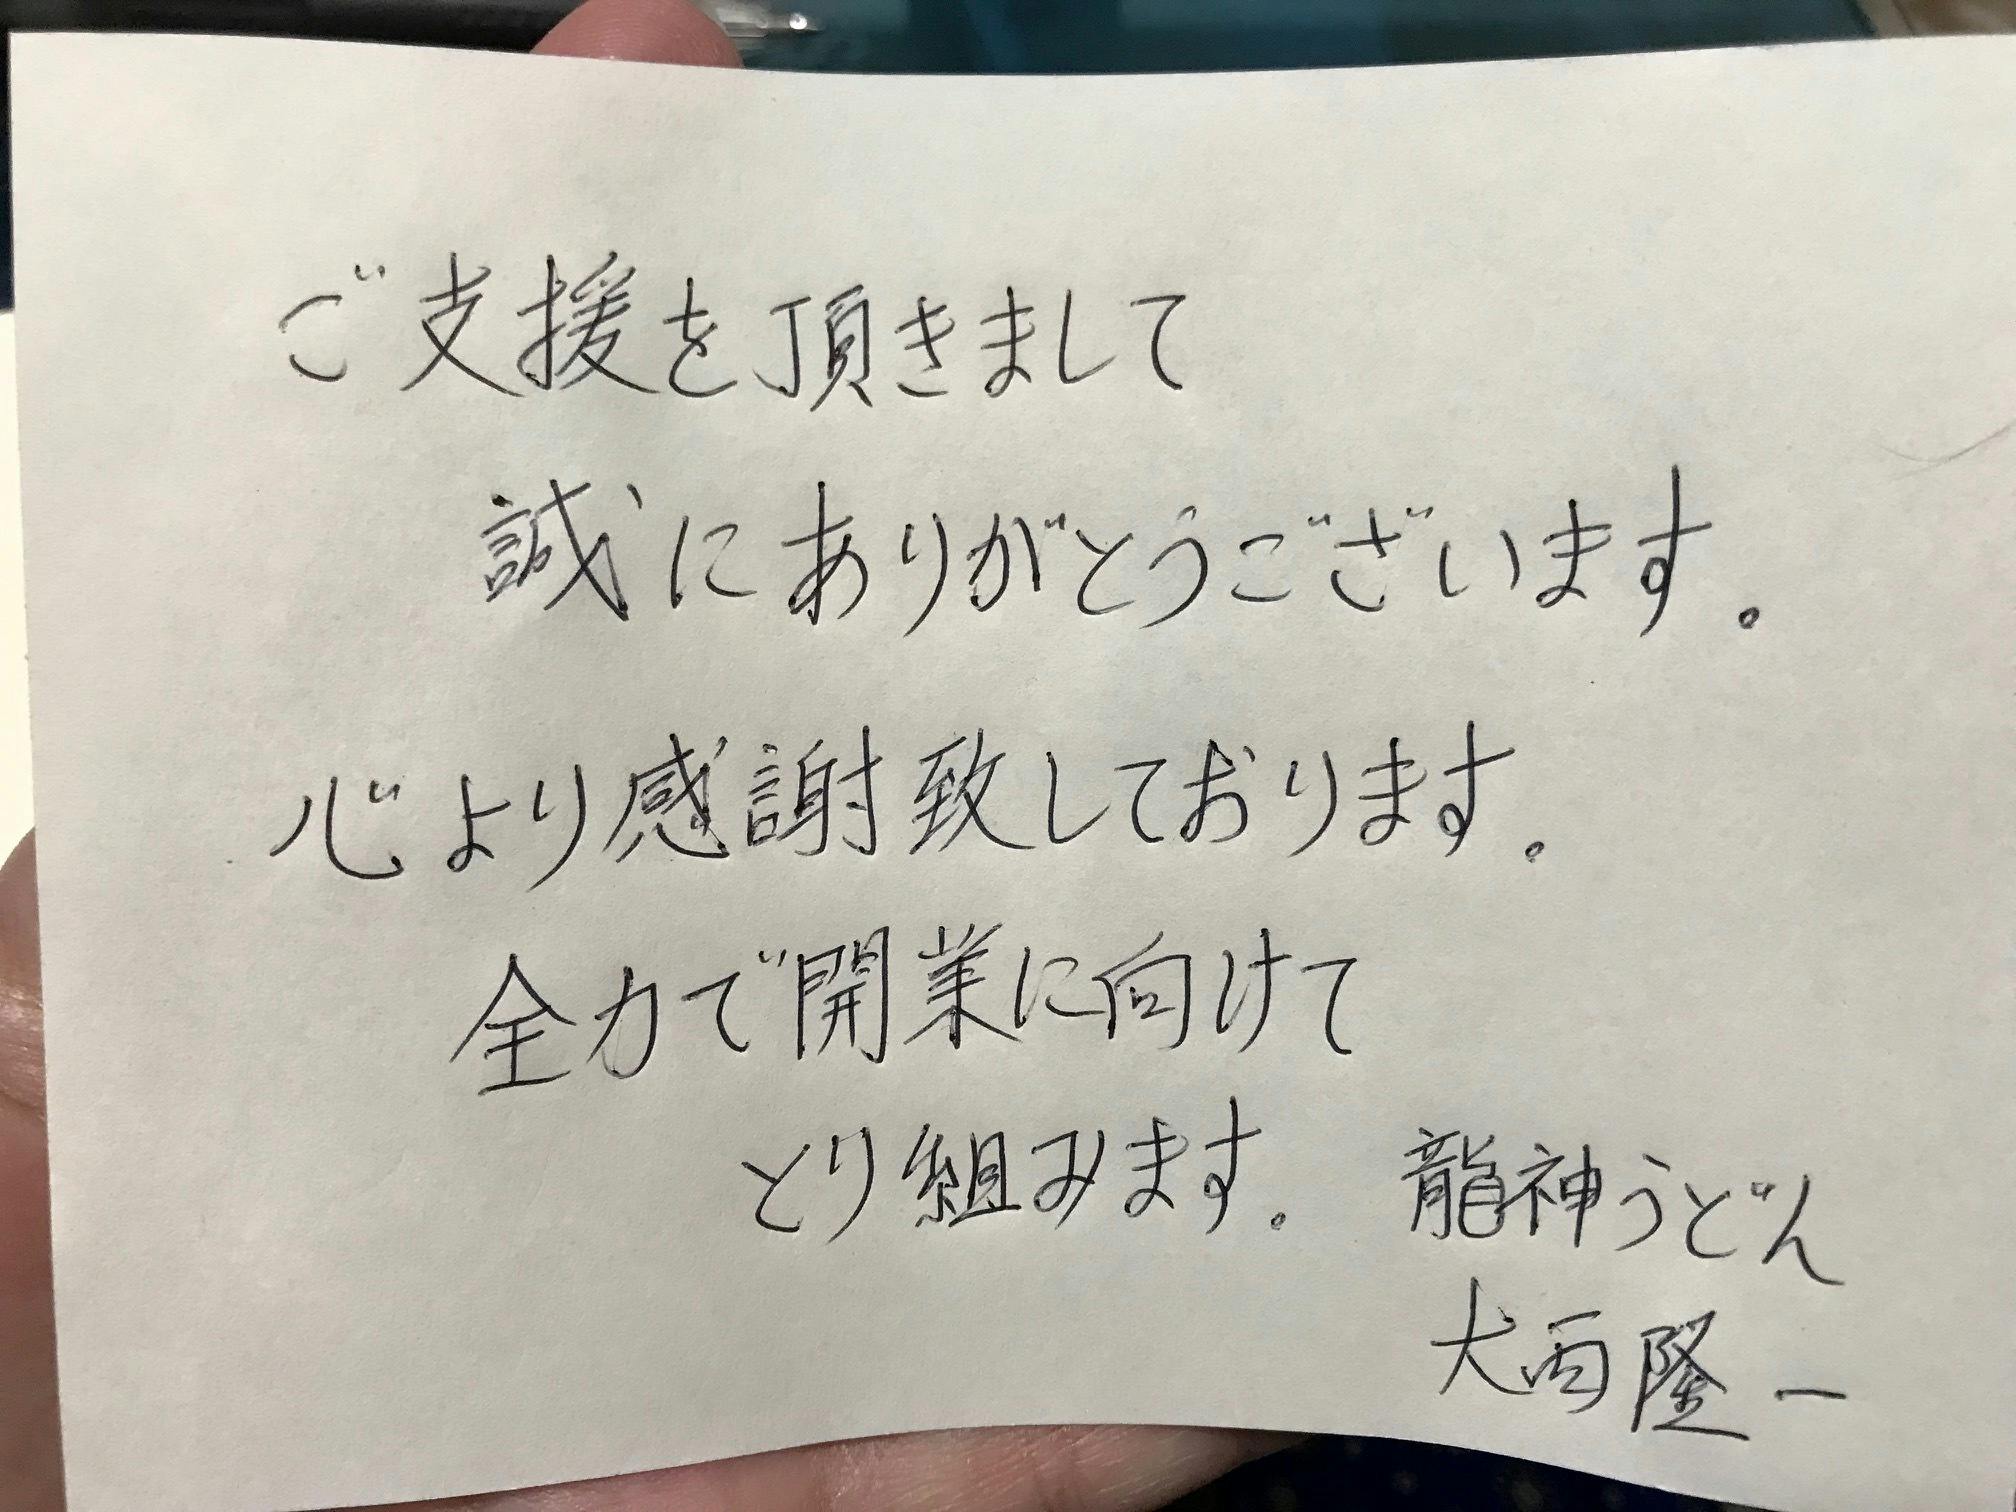 ご支援を頂きまして
誠にありがとうございます。
心より感謝致しております。
全力で開業に向けて
とり組みます。
龍神うどん
大西隆一